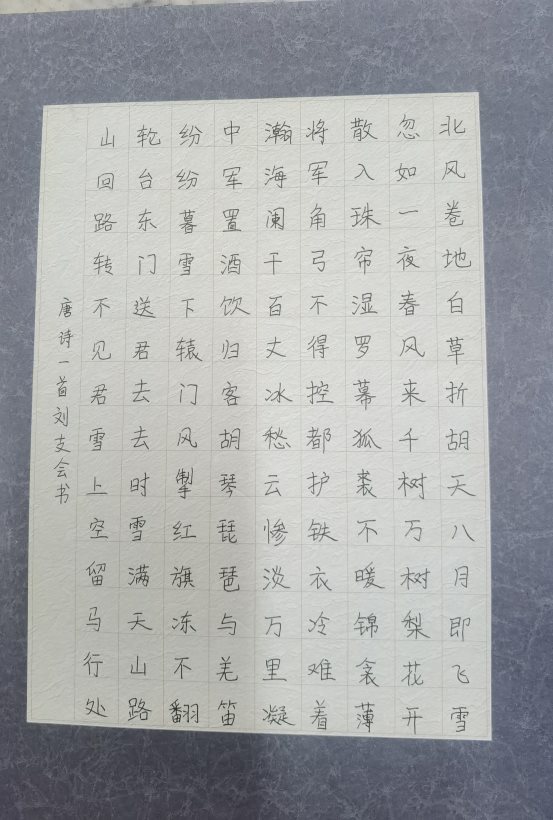 北风卷地白草折胡天八月即飞雪
忽如一夜春风来千树万树梨花开
散入珠帘湿罗幕狐裘不暖锦衾薄
将军角弓不得控都护铁衣冷难着
瀚海阑干百丈冰愁云惨淡万里凝
中军置酒饮归客胡琴琵琶与羌笛
纷纷暮雪下辕门风掣红旗冻不翻
轮台东门送君去去时雪满天山路
山回路转不见君雪上空留马行处
唐诗一首刘支会书